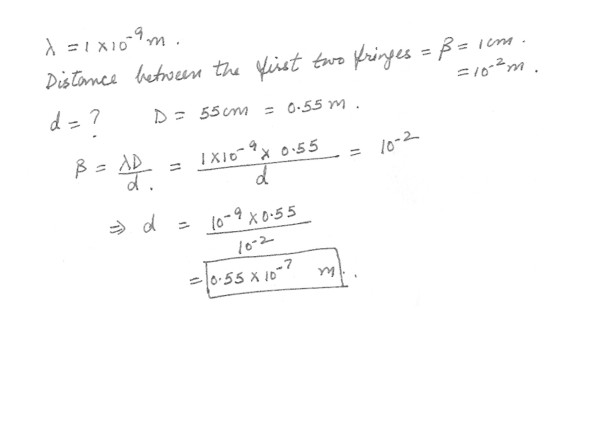 λ = 1 × 10⁻⁹ m .
Distance between the first two fringes = β = 1 cm .
= 10⁻² m .
d = ? D = 55 cm = 0.55 m .
β = λD/d . = 1×10⁻⁹ × 0.55/d = 10⁻²
⇒ d = 10⁻⁹ × 0.55/10⁻²
= 0.55 × 10⁻⁷ m . .